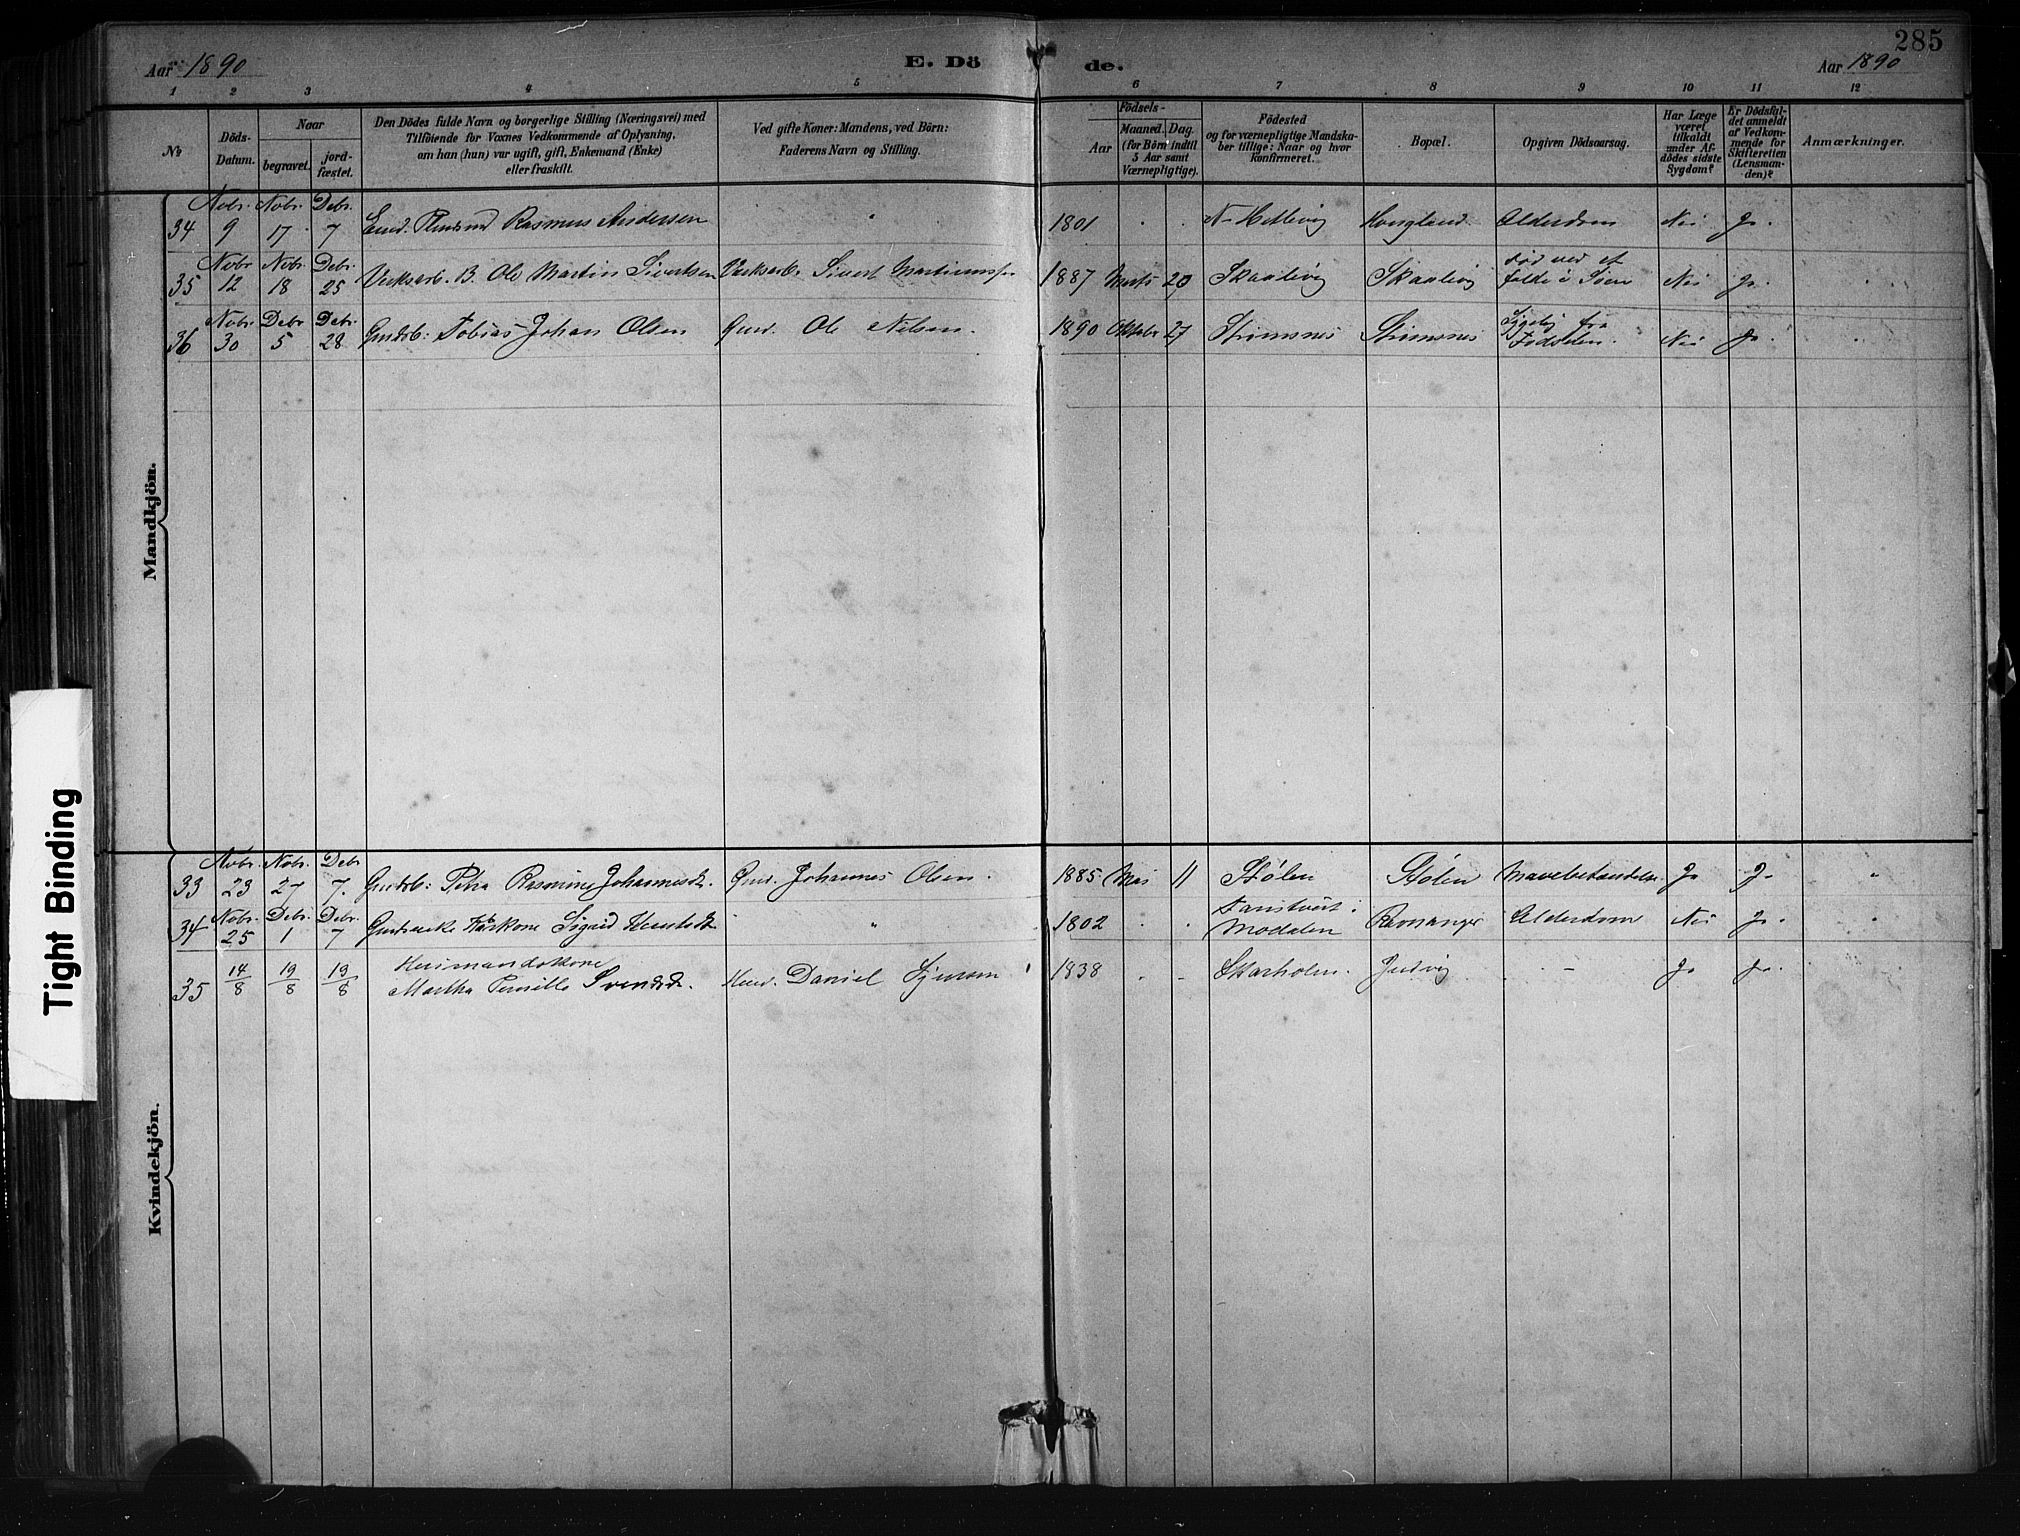 285
Aar 1890 E. Dö de. Aar 1890
1 2 3 4 5 6 7 8 9 10 11 12
№ Döds-Datum. Naar begravet. jord-fæstet. Den Dödes fulde Navn og borgerlige Stilling (Næringsvei) med Tilföiende for Voxnes Vedkommende af Oplysning, om han (hun) var ugift, gift, Enkemand (Enke) eller fraskilt. Ved gifte Koner: Mandens, ved Börn: Faderens Navn og Stilling. Födsels- Aar Maaned. Dag. (for Börn indtil 5 Aar samt Værnepligtige). Födested og for værnepligtige Mandska-ber tillige: Naar og hvor Konfirmeret. Bopæl. Opgiven Dödsaarsag. Har Læge været tilkaldt under Af-dödes sidste Sygdom? Er Dödsfal-det anmeldt af Vedkom-mende for Skifteretten (Lensman-den)? Anmærkninger.
Mandkjön.
Nobr. Nobr. Debr.
34 9 17 7 Rasmus Andersen " 1801 . . Alderdom Nei Ja.
Nobr Nobr. Debr.
35 12 18 25 Ole Martin Sivertsen Sivert 1887 Marts 20 Skaalevig Skaalevig død ved et fald i Søen Nei Ja. "
Nobr. Debr Debr.
36 30 5 28 Gmdsb: Tobias Johan Olsen Gmd. Ole Nilsen. 1890 Oktobr 27 Strømsnes Strømsnes Sygelig fra Fødselen. Nei Ja. "
Kvindekjön.
Nobr. Nobr. Debr
33 23 27 7. Gmdsb: Petra Rasmine Johannesdt. Gmd. Johannes Olsen. 1885 Mai 11 Stølen Stølen Ja Ja "
Nobr. Debr. Debr.
34 25 1 7 Sigrid " 1802 . . Modalen Ravnanger Alderdom Nei Ja. "
Husmandskone
35 14/8 19/8 19/8 Martha Pernille Svendsdt. Husmd. Daniel 1838 - - Skarholm. - Ja Ja.
Tight Binding